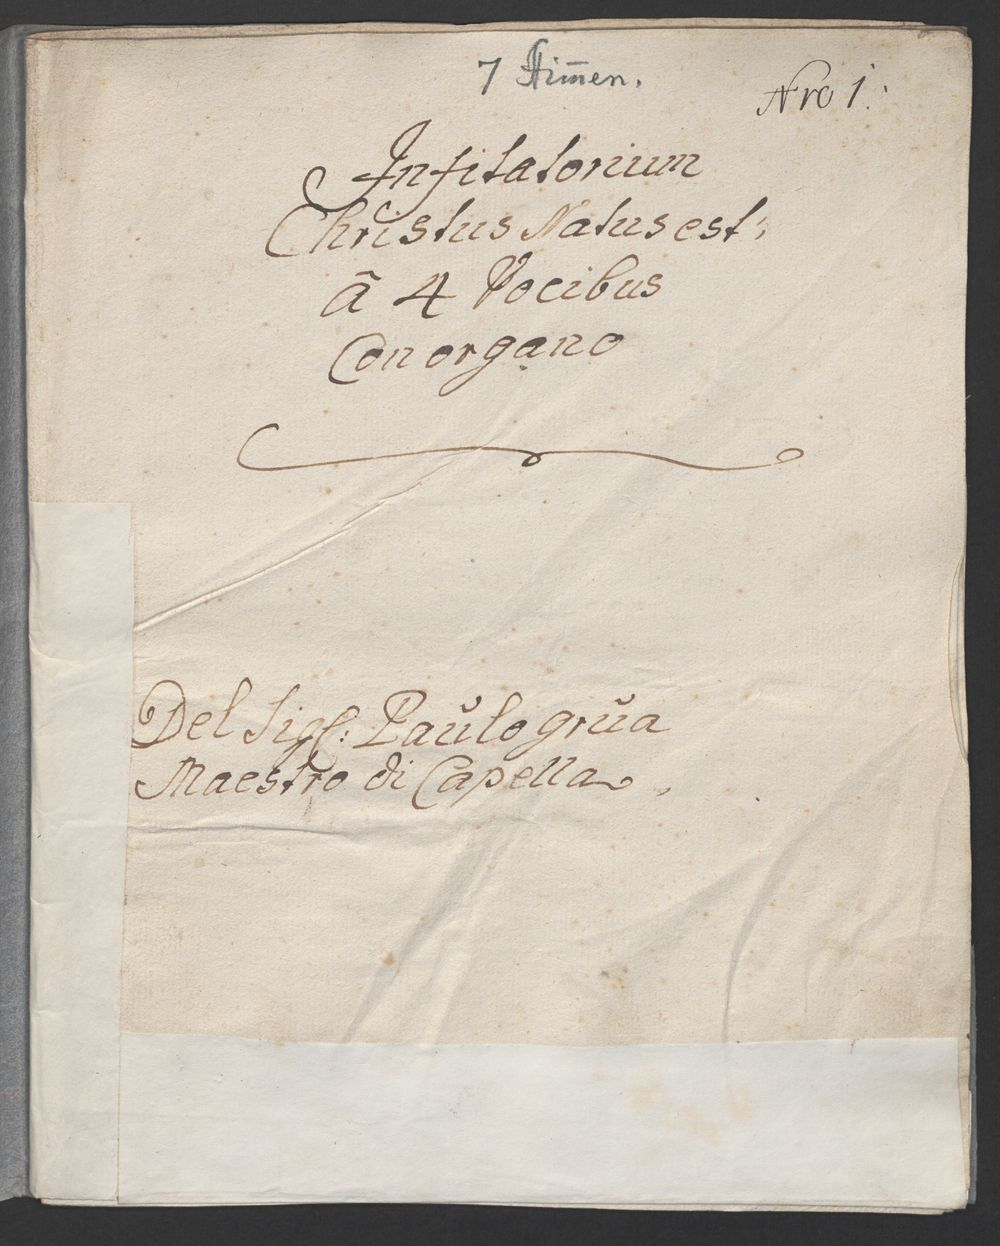 7 Stim̄en.
Nro 1.
Infitatorium
Christus Natus est;
â 4 Vocibus
Con organo
Del Sigl: Paŭlo grŭa
Maestro di Capella